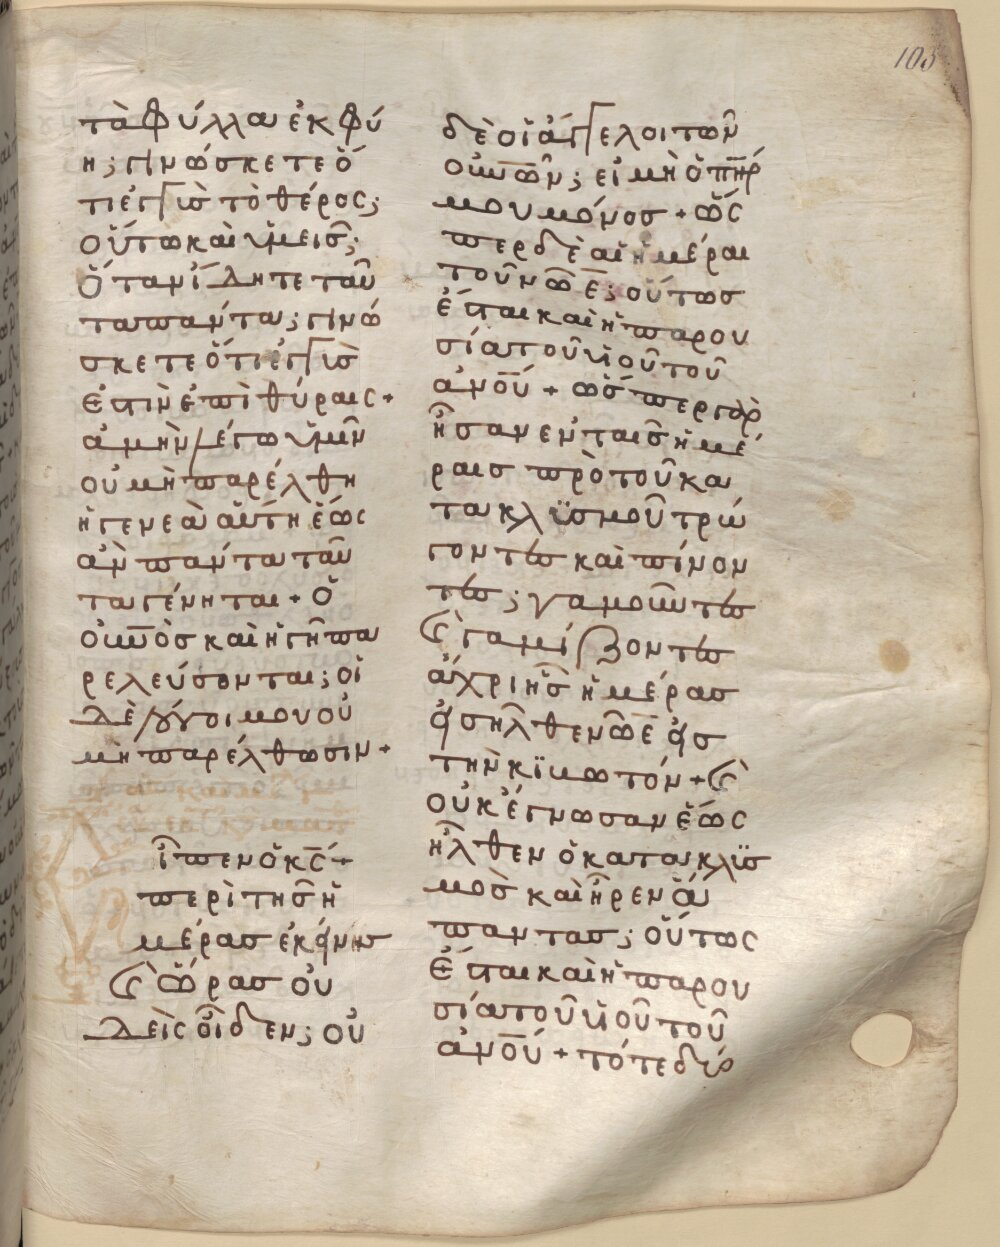 103
τὰ φύλλα ἐκφύ
η; γινώσκετε ὅ
τι ἐγγὺσ τὸ θέρος;
οὕτω καὶ ὑμεισ;
Ὅταν ἴδητε ταῦ
τα πάντα; γινώ
σκετε ὅτι ἐγγὺσ
ἐστιν ἐπὶ θύραις +
ἀμὴν λέγω ὑμῖν
οὐ μὴ παρέλθη
ἡ γενεὰ αὕτη ἕως
ἀν πάντα ταῦ
τα γένηται + Ὁ
οὐνὸσ καὶ ἡ γῆ πα
ρελεύσονται; οἱ
δὲ λόγοι μου οὐ
μὴ παρέλθωσιν +
ἶπεν ὁ κσ +
περὶ τησ ἡ
μέρασ ἐκείνησ
καὶ ὥρασ οὐ
δεὶς οἶδεν; οὐ
δὲ οἱ ἄγγελοι τῶν
οὐνῶν; εἰ μὴ ὁ πηρ
μου μόνοσ + ὥσ
περ δὲ αἱ ἡμέραι
τοῦ νῶε; οὕτωσ
ἔσται καὶ ἡ παρου
σία τοῦ υἱοῦ τοῦ
ανου + ὥσπερ γὰρ
ἦσαν εν ταισ ἡμέ
ραισ πρὸ τοῦ κα
τακλϋσμοῦ τρώ
γοντεσ καὶ πίνον
τεσ; γαμοῦντεσ
καὶ γαμίζοντεσ
ἄχρι ἧσ ἡμέρασ
εἰσῆλθεν νῶε εἰσ
τὴν κϊβωτόν + καὶ
οὐκ ἔγνωσαν ἕως
ἦλθεν ὁ κατακλϋσ
μοσ καὶ ἦρεν ἅ
παντασ; οὕτως
ἔσται καὶ ἡ παρου
σία τοῦ υἱοῦ τοῦ
ανου + τότε δύο